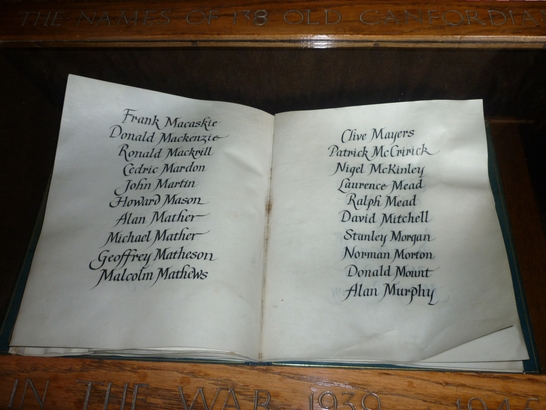 THE NAMES OF 138 OLD CANFORDIANS
Frank Macaskie
Donald Mackenzie
Ronald Mackrill
Cedric Mardon
John Martin
Howard Mason
Alan Mather
Michael Mather
Geoffrey Matheson
Malcolm Mathews
Clive Mayers
Patrick McCririck
Nigel McKinley
Laurence Mead
Ralph Mead
David Mitchell
Stanley Morgan
Norman Morton
Donald Mount
Alan Murphy
IN THE WAR 1939 1945